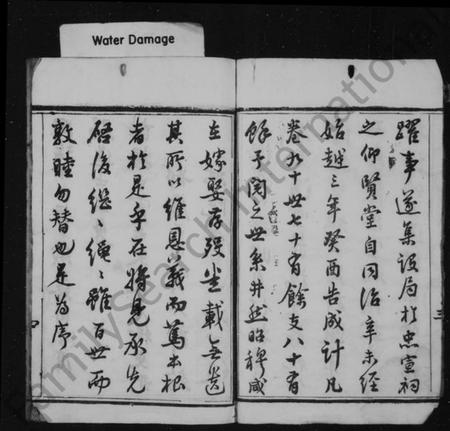 Water Damage
躍事遂集設局於忠宣祠
之仰賢堂自同治辛未經
始越三年癸酉告成計凡
卷九十世七十有餘支八十有
餘予閱之世系井然昭穆咸
在嫁娶存歿坐載無遺
其所以維恩義而篤本根
者於是乎在將見承先
啟後繼繼繩繩雖百世而
敦睦勿替也是為序
三
FamilySearch International